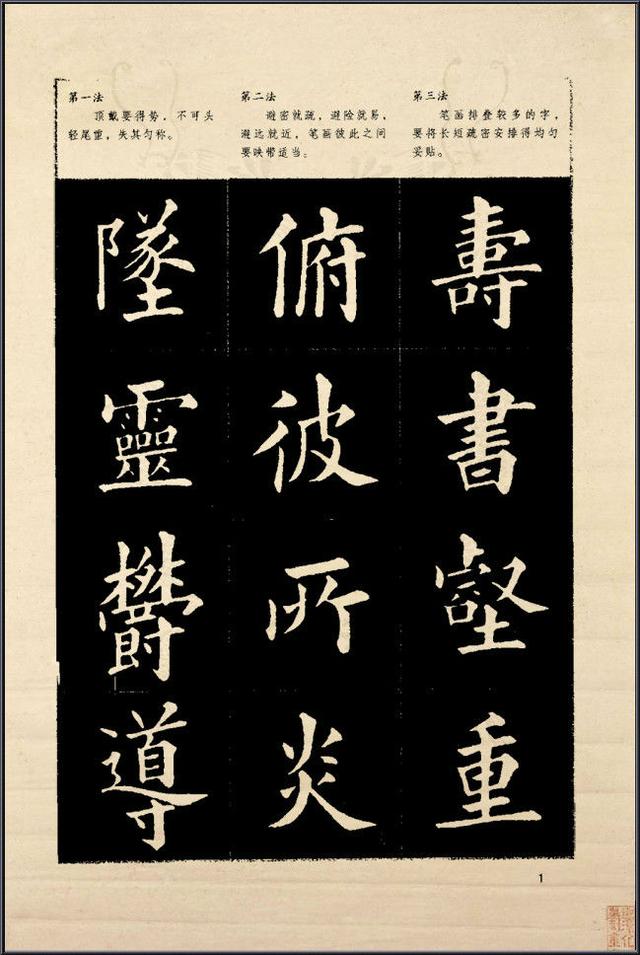 第一法
顶戴要得势，不可头
轻尾重，失其匀称。
第二法
避密就疏，避险就易，
避远就近，笔画彼此之间
要映带适当。
第三法
笔画排叠较多的字，
要将长短疏密安排得均匀
妥贴。
墜
靈
鬱
導
俯
彼
所
炎
壽
書
壑
重
1